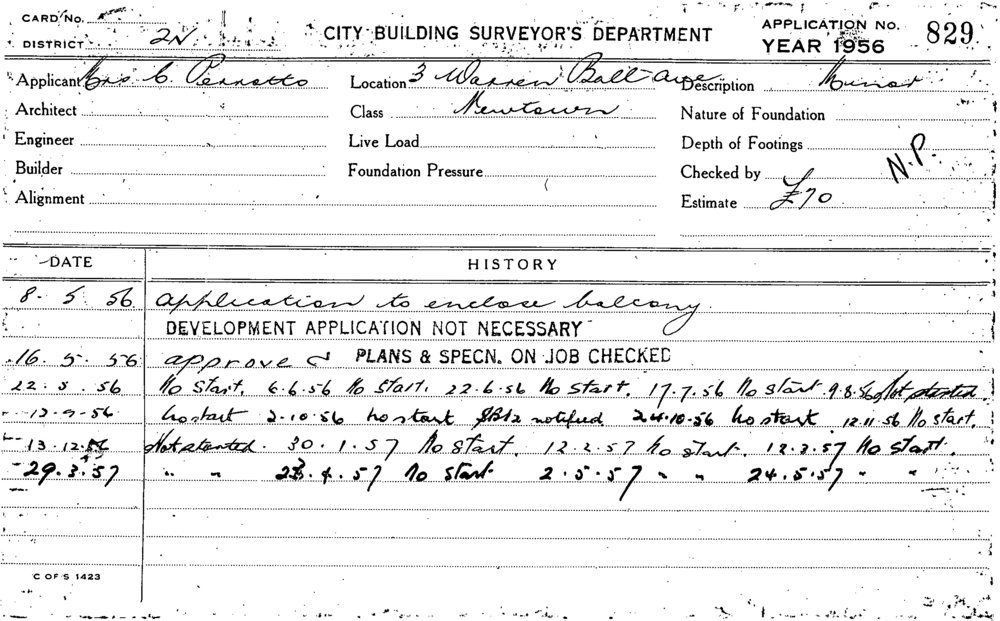 CARD No.
DISTRICT 2N
CITY BUILDING SURVEYOR'S DEPARTMENT
APPLICATION No. 829
YEAR 1956
Applicant Mrs C. Perrotto Location 3 Warren Ball Ave Description Minor
Architect Class Newtown Nature of Foundation
Engineer Live Load Depth of Footings
Builder Foundation Pressure Checked by N.P.
Alignment Estimate £70
DATE HISTORY
8. 5. 56 application to enclose balcony.
DEVELOPMENT APPLICATION NOT NECESSARY
16. 5. 56 approved PLANS & SPECN. ON JOB CHECKED
22. 5. 56 No start. 6.6.56 No start. 22.6.56 No start. 17.7.56 No start 9.8.56 Not started
12-9-56 no start 2.10.56 no start notified 24.10.56 no start 12.11.56 No start.
13.12.56 Not started. 30.1.57 No start. 12.2.57 no start. 12.3.57 No start.
29.3.57 " " 23.4.57 No start 2.5.57 " " 24.5.57 " "
C OF S 1423